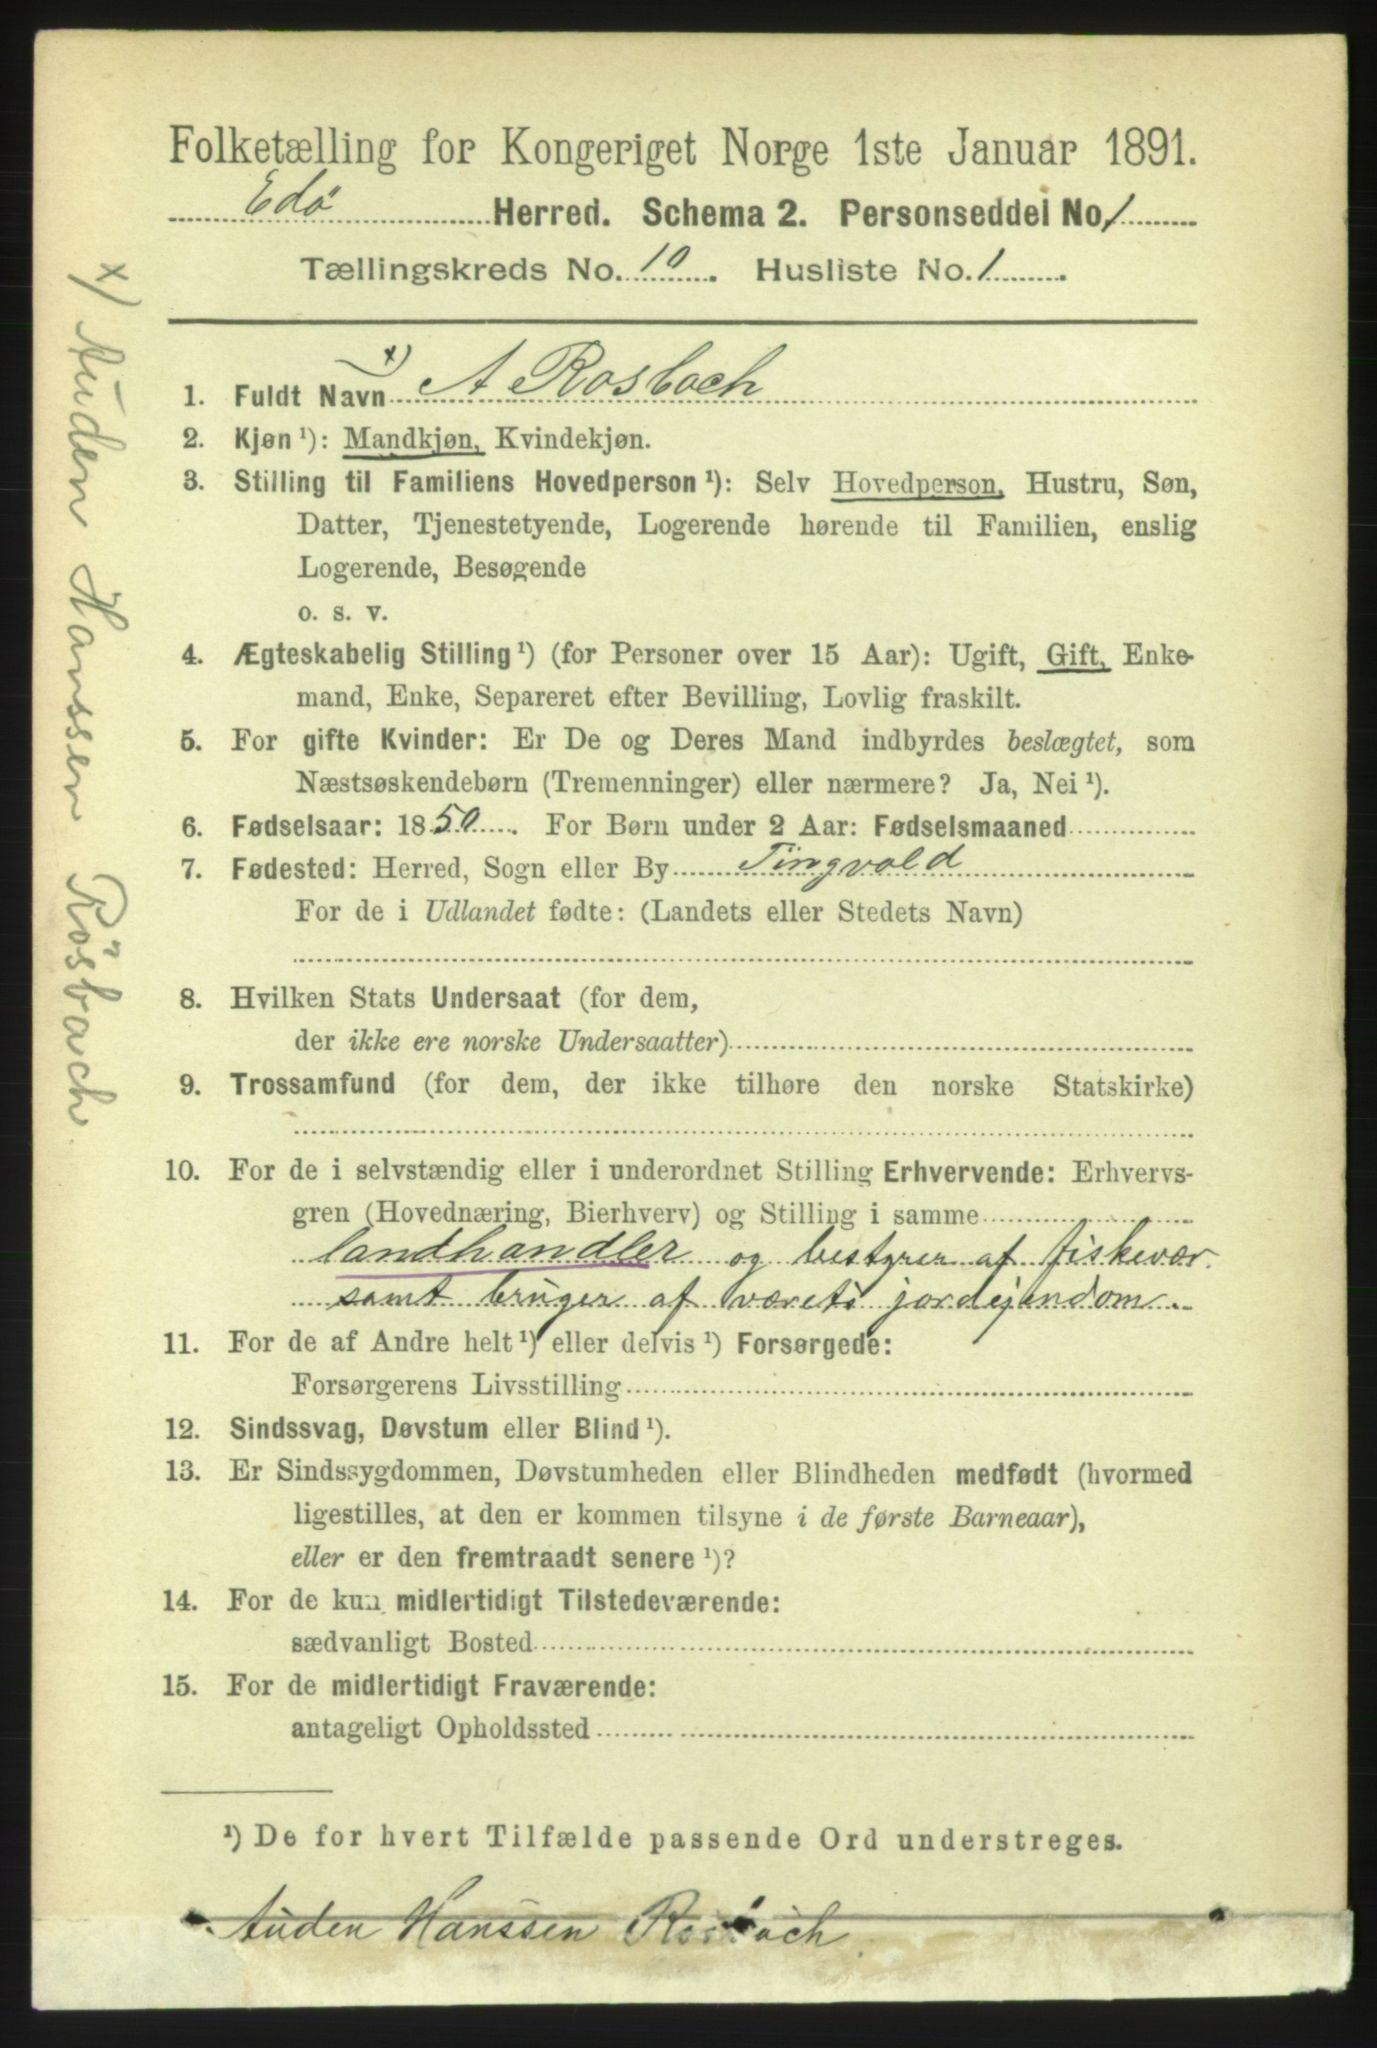 Folketælling for Kongeriget Norge 1ste Januar 1891.
Edö Herred. Schema 2. Personseddel No. 1
Tællingskreds No. 10. Husliste No. 1.
x)
1. Fuldt Navn A Rosbach
2. Kjøn ¹): Mandkjøn, Kvindekjøn.
3. Stilling til Familiens Hovedperson ¹): Selv Hovedperson, Hustru, Søn,
Datter, Tjenestetyende, Logerende hørende til Familien, enslig
Logerende, Besøgende
o. s. v.
4. Ægteskabelig Stilling ¹) (for Personer over 15 Aar): Ugift, Gift, Enke-
mand, Enke, Separeret efter Bevilling, Lovlig fraskilt.
5. For gifte Kvinder: Er De og Deres Mand indbyrdes beslægtet, som
Næstsøskendebørn (Tremenninger) eller nærmere? Ja, Nei ¹).
6. Fødselsaar: 1850. For Børn under 2 Aar: Fødselsmaaned
7. Fødested: Herred, Sogn eller By Tingvold
For de i Udlandet fødte: (Landets eller Stedets Navn)
8. Hvilken Stats Undersaat (for dem,
der ikke ere norske Undersaatter)
9. Trossamfund (for dem, der ikke tilhøre den norske Statskirke)
10. For de i selvstændig eller i underordnet Stilling Erhvervende: Erhvervs-
gren (Hovednæring, Bierhverv) og Stilling i samme
landhandler og bestyrer af fiskevær
samt bruger af værets jordejendom.
11. For de af Andre helt ¹) eller delvis ¹) Forsørgede:
Forsørgerens Livsstilling
12. Sindssvag, Døvstum eller Blind ¹).
13. Er Sindssygdommen, Døvstumheden eller Blindheden medfødt (hvormed
ligestilles, at den er kommen tilsyne i de første Barneaar),
eller er den fremtraadt senere ¹)?
14. For de kun midlertidigt Tilstedeværende:
sædvanligt Bosted
15. For de midlertidigt Fraværende:
antageligt Opholdssted
¹) De for hvert Tilfælde passende Ord understreges.
Auden Hanssen Rosbach
x) Auden Hanssen Rösbach